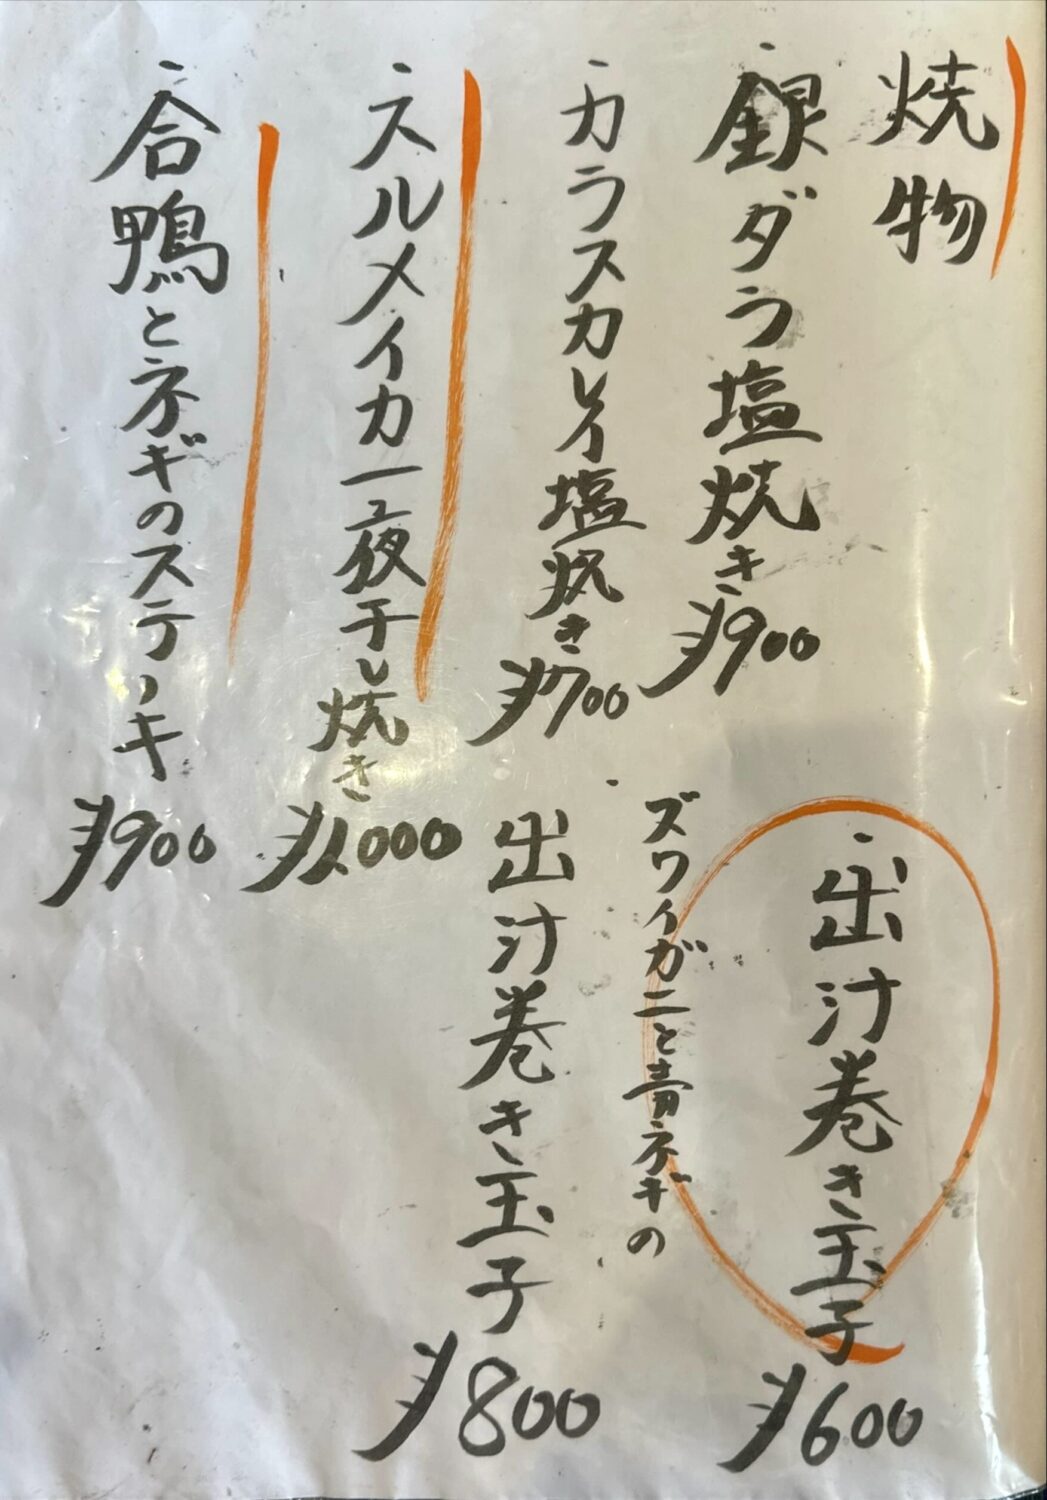 焼物
・銀ダラ塩焼き ¥900
・カラスカレイ塩焼き ¥700
・スルメイカ一夜干し焼き ¥1,000
・合鴨とネギのステーキ ¥900
・出汁巻き玉子 ¥600
・ズワイガニと青ネギの
出汁巻き玉子 ¥800